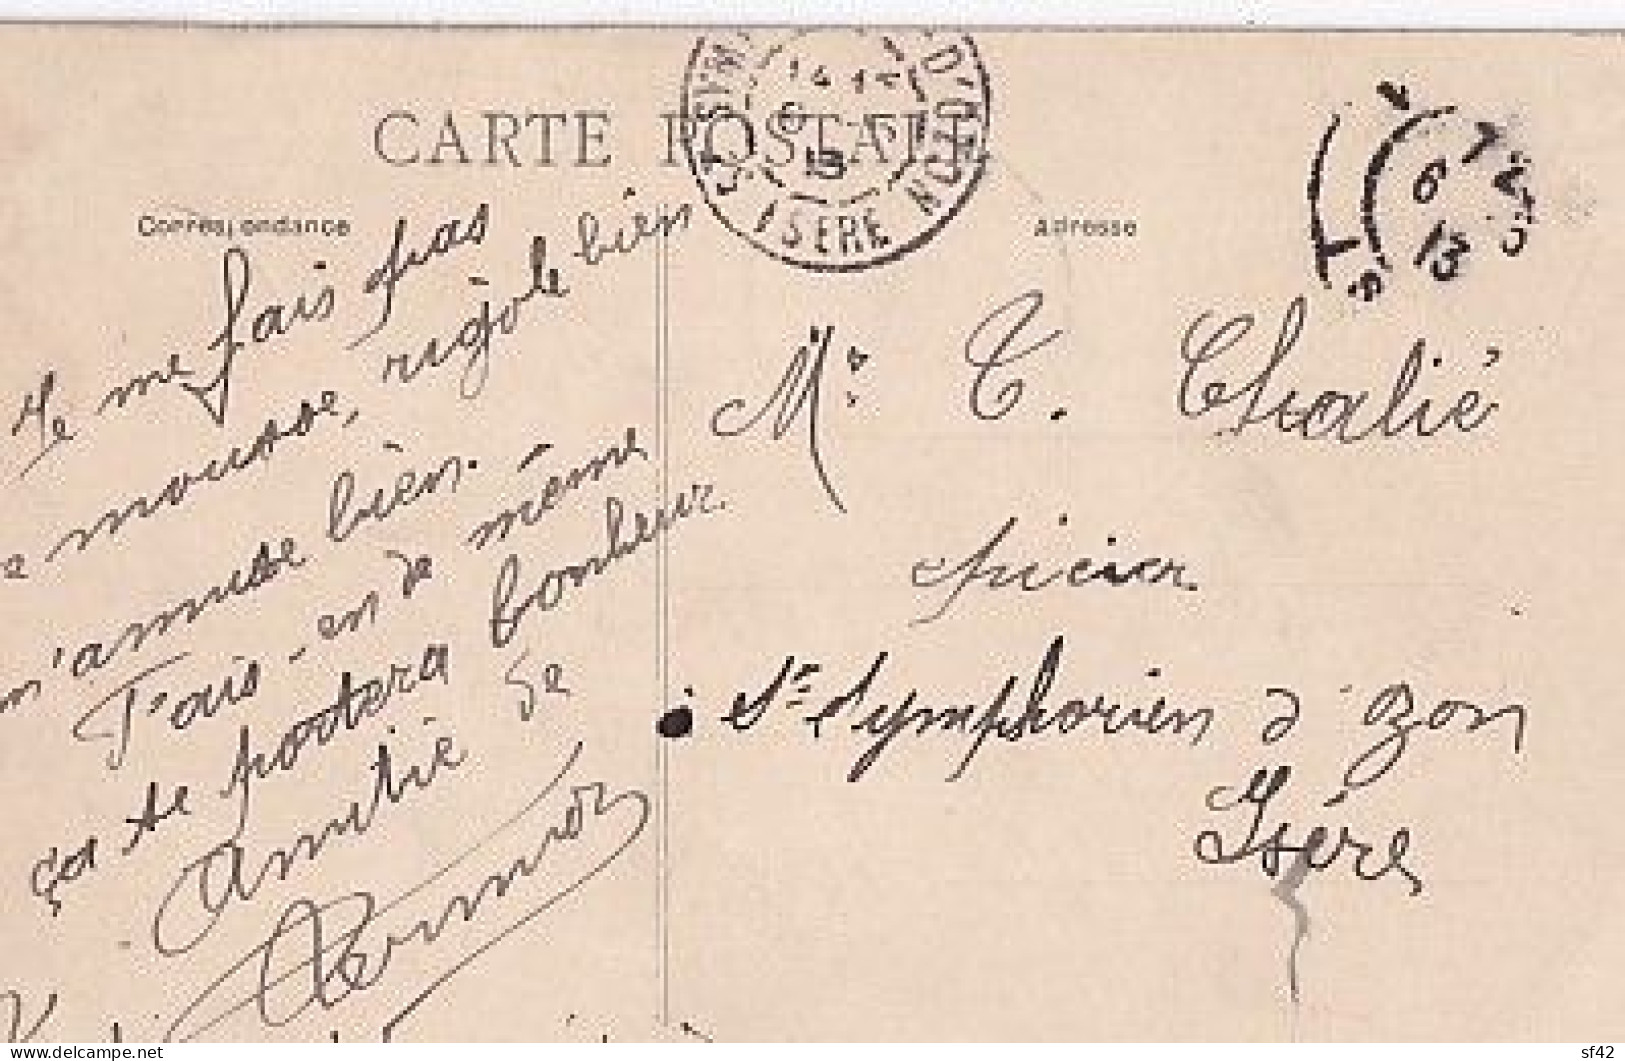 CARTE POSTALE
Correspondance
Adresse
D'OZON
ISERE
6
13
Je me fais pas
e mousse, rigole bien
m'amuse bien.
Fais-en de même
ça te portera bonheur
Amitié de
Mr. C. Chalié
épicier
St. Symphorien d'Ozon
Isère
sf42